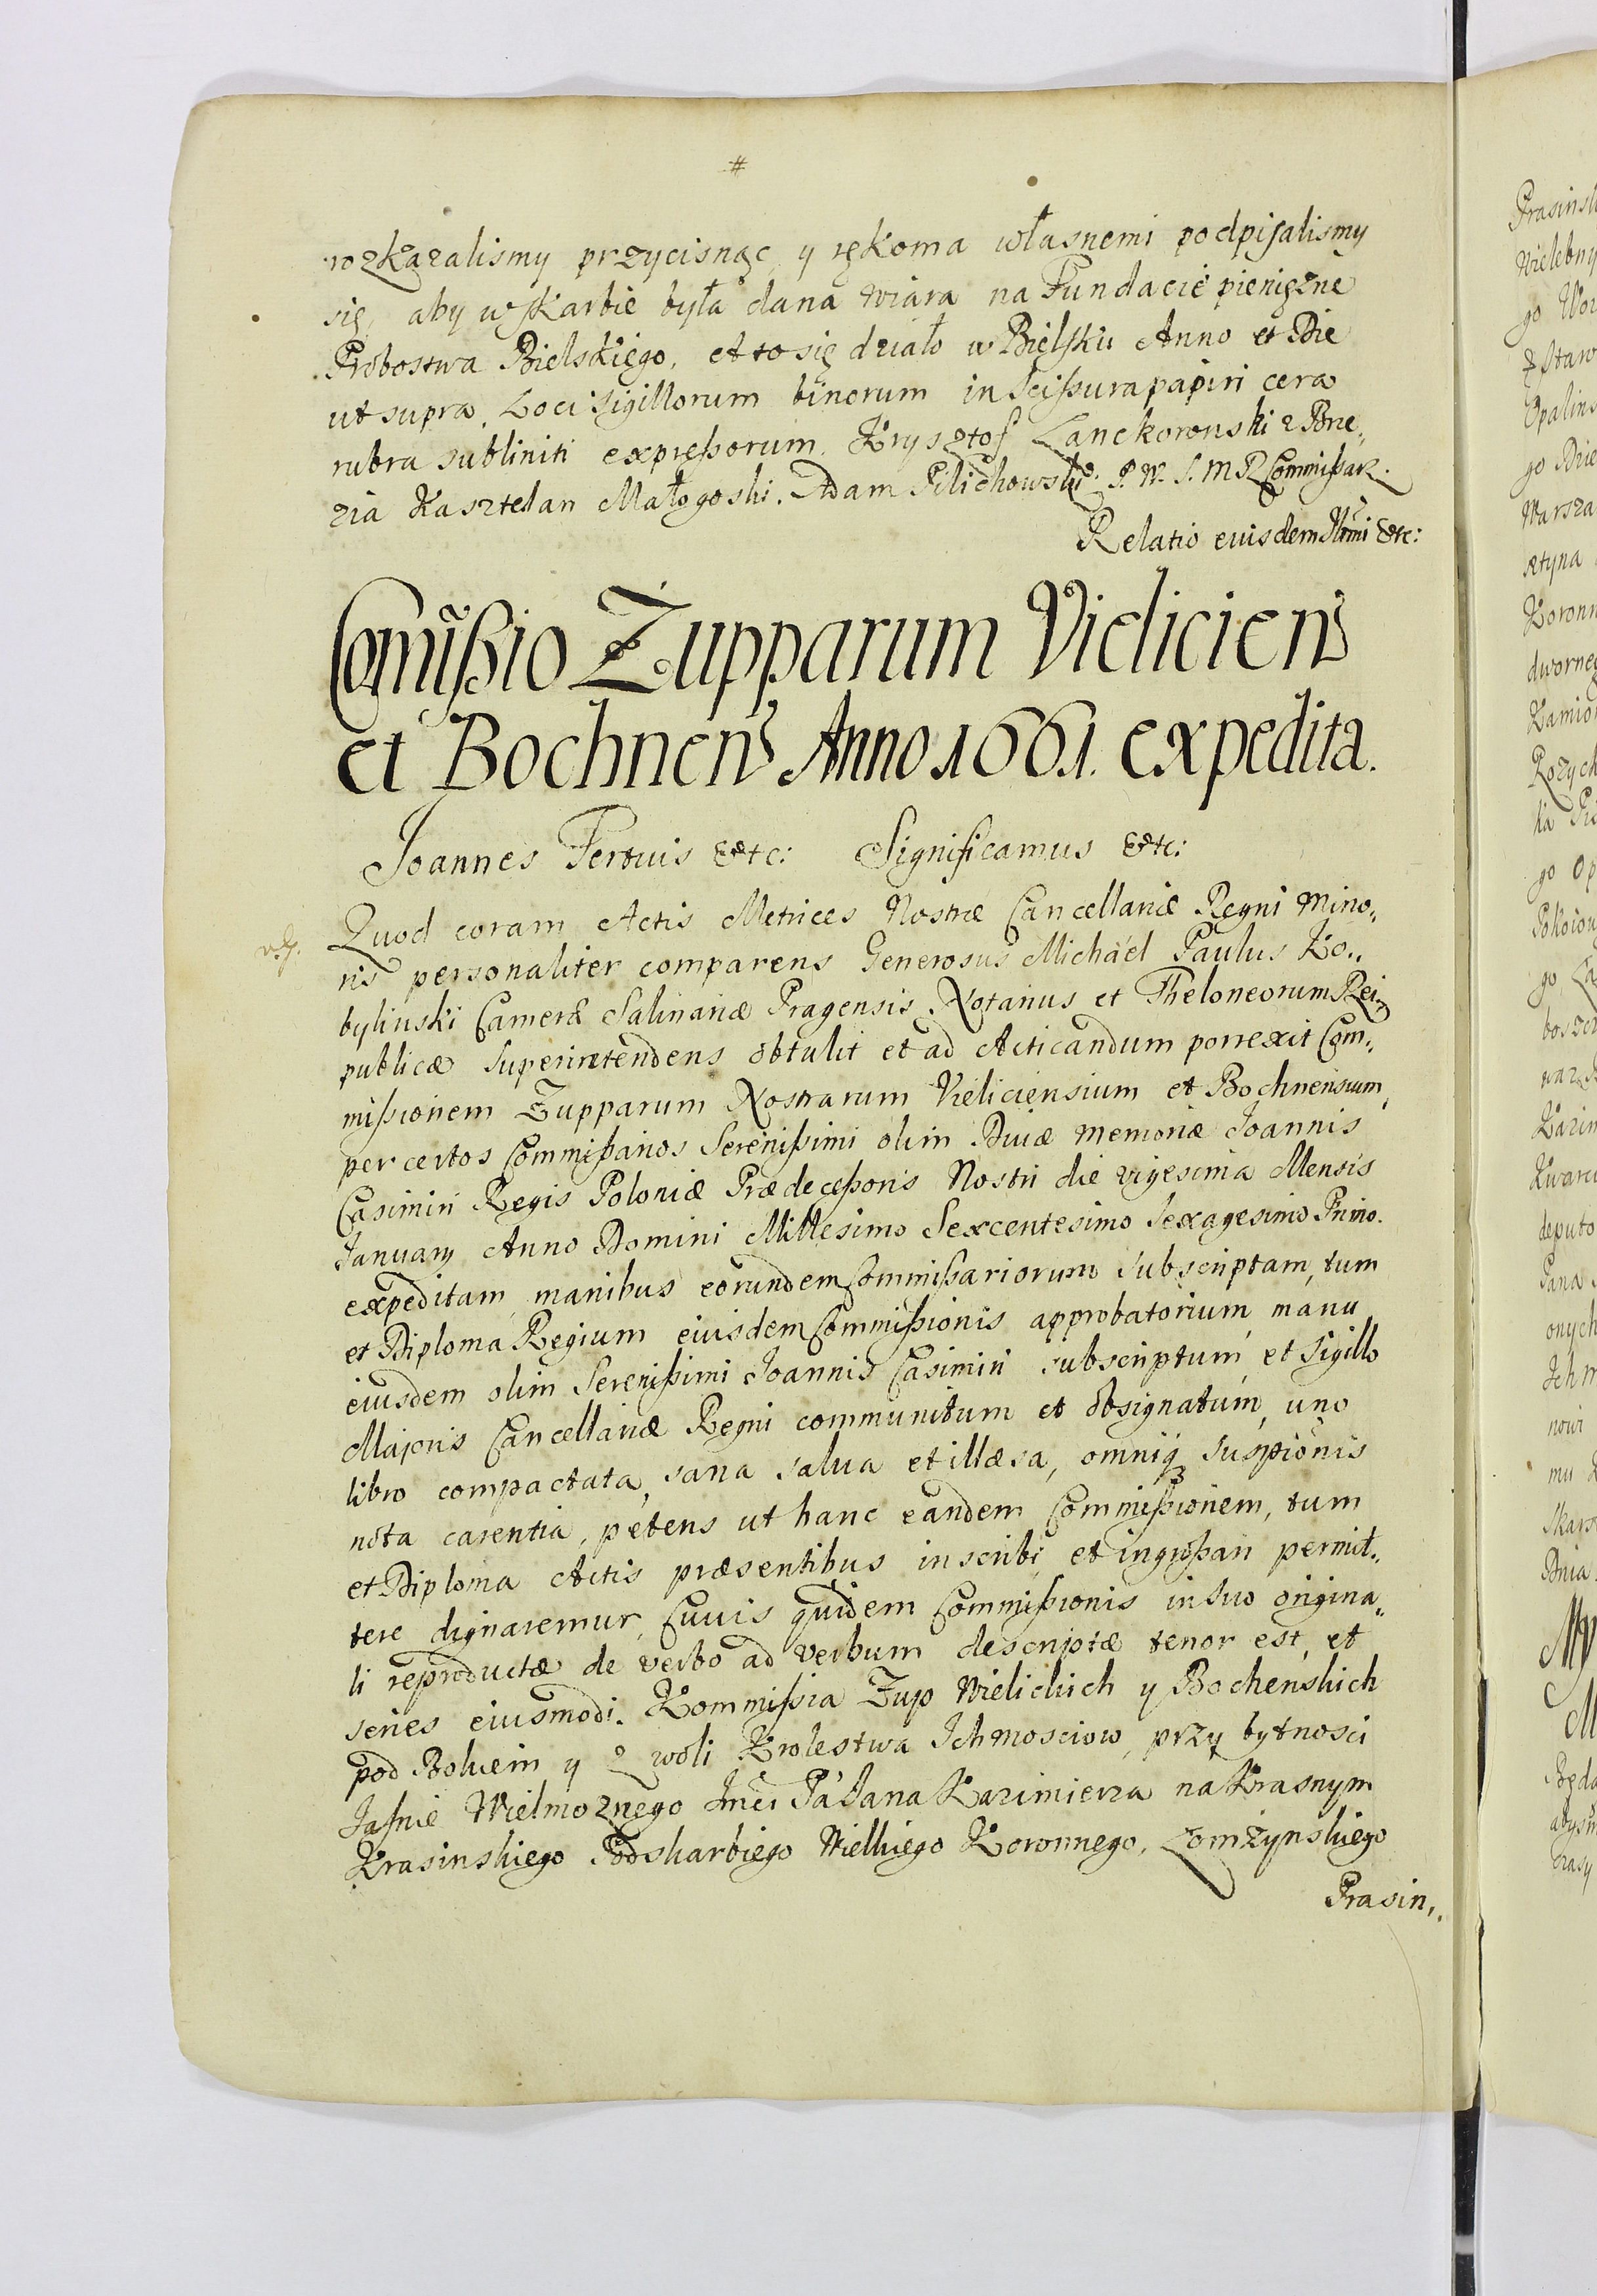 #
rozkazalismy przycisnąc, y rękoma własnemi podpisalismy
się, aby w skarbie była dana wiara na Fundacie pienięzne
Probostwa Bielskiego, et to się działo w Bielsku Anno et Die
ut supra. Loci sigillorum binorum in scissura papiri cera
rubra subliniti expressorum. Krysztof Lanckoronski z Brze„
zia Kasztelan Małogoski. Adam Pilichowski P. W. J. M R Commissarz.
Relatio eiusdem Illmi Etc:
Comissio Zupparum Vieliciens
et Bochnens Anno 1661. expedita.
Joannes Tertius Etc: Significamus Etc:
Quod coram Actis Metrices Nostræ Cancellariæ Regni Mino„
ris personaliter comparens Generosus Michaël Paulus Ko„
bylinski Cameræ Salinariæ Pragensis Notarius et Theloneorum Rei„
publicæ Superintendens obtulit et ad Acticandum porrexit Com„
missionem Zupparum Nostrarum Vieliciensium et Bochnensium,
per certos Commissarios Serenissimi olim Divæ memoriæ Joannis
Casimiri Regis Poloniæ Prædecessoris Nostri die vigesima Mensis
January Anno Domini Millesimo Sexcentesimo Sexagesimo Primo.
expeditam, manibus eorundem Commissariorum subscriptam, tum
et Diploma Regium eiusdem Commissionis approbatorium, manu
eiusdem olim Serenissimi Joannis Casimiri subscriptum, et Sigillo
Majoris Cancellariæ Regni communitum et obsignatum, uno
libro compactata, sana salva et illæsa, omniq suspionis
nota carentia, petens ut hanc eandem Commissionem, tum
et Diploma Actis præsentibus inscribi et ingrossari permit„
tere dignaremur, Cuuis quidem Commissionis in suo origina„
li reproductæ de verbo ad verbum descriptæ tenor est, et
series eiusmodi. Kommissia Zup Wielickich y Bochenskich
pod Bokiem y z woli Krolestwa Ichmosciow, przy bytnosci
Jasnie Wielmoznego Jmci Pa Jana Kazimierza na Krasnym
Krasinskiego Podskarbiego Wielkiego Koronnego, Łomżynskiego
Prasin„